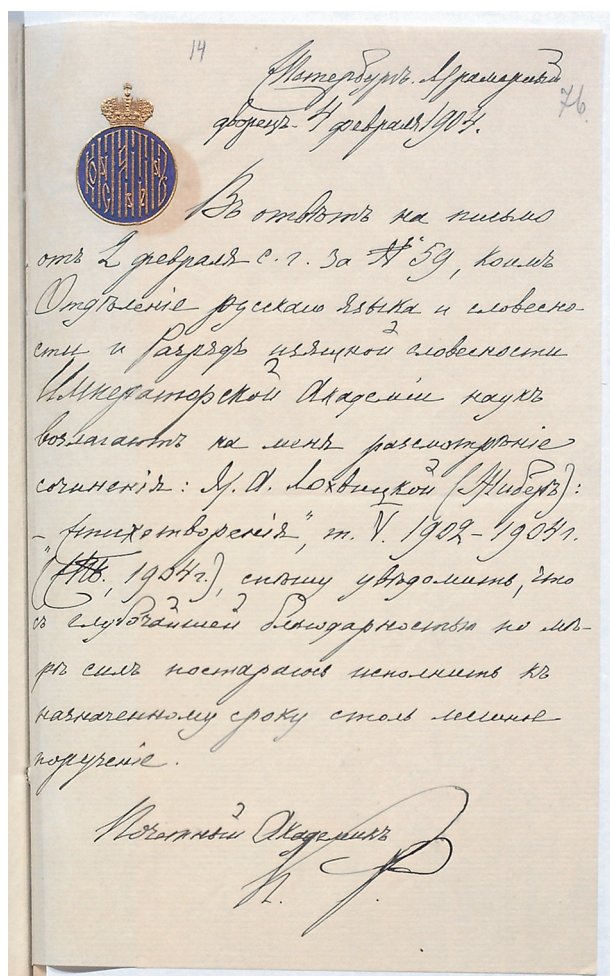 14
С.Петербургъ. Мраморный
76
дворецъ. 4 февраля 1904.
Въ отвѣтъ на письмо
отъ 2 февраля с. г. за № 59, коимъ
Отдѣленіе русскаго языка и словесно-
сти и Разрядъ изящной словесности
Императорской Академіи наукъ
возлагаютъ на меня разсмотрѣніе
сочиненія: М. А. Лохвицкой (Жиберъ):
– „Стихотворенія", т. V. 1902–1904г.
(СПб., 1904г.), спѣшу увѣдомить, что
съ глубочайшей благодарностью по мѣ-
рѣ силъ постараюсь исполнить къ
назначенному сроку столь лестное
порученіе.
Почетный Академикъ
К. Р.